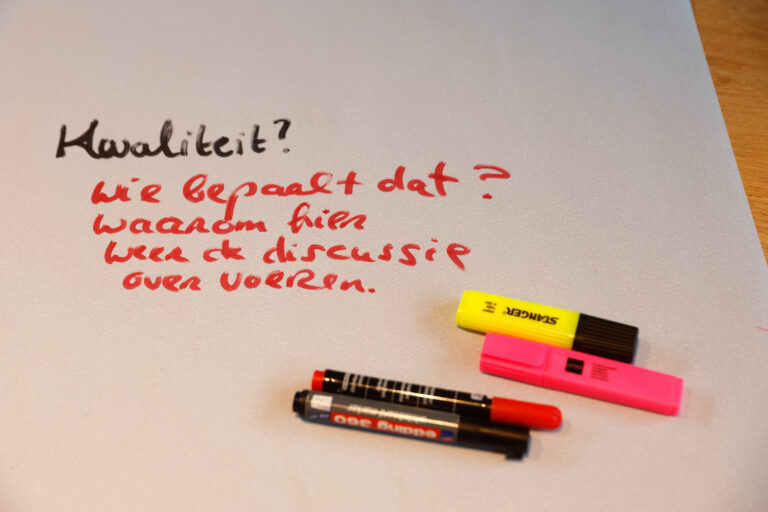 Kwaliteit?
wie bepaalt dat?
waarom hier
weer de discussie
over voeren.
STANGER
edding 360